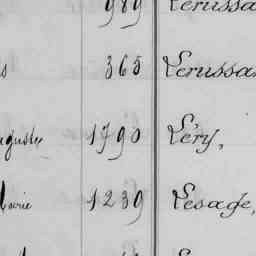 989 Lerussa
s 365 Lerussa
uguste 1790 Léry,
Marie 1239 Lesage,